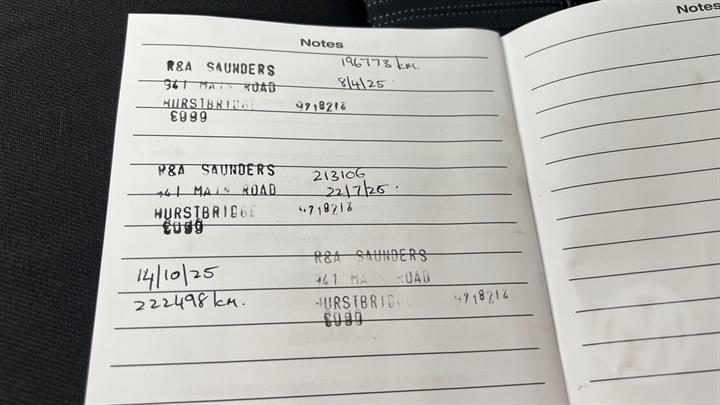 Notes
Notes
R&A SAUNDERS 196773 km.
941 MAIN ROAD 8/4/25.
HURSTBRIDGE 9718216
3099
R&A SAUNDERS 213106
941 MAIN ROAD 22/7/25.
HURSTBRIDGE 9718216
3099
14/10/25 R&A SAUNDERS
941 MAIN ROAD
222498 km. HURSTBRIDGE 9718216
3099